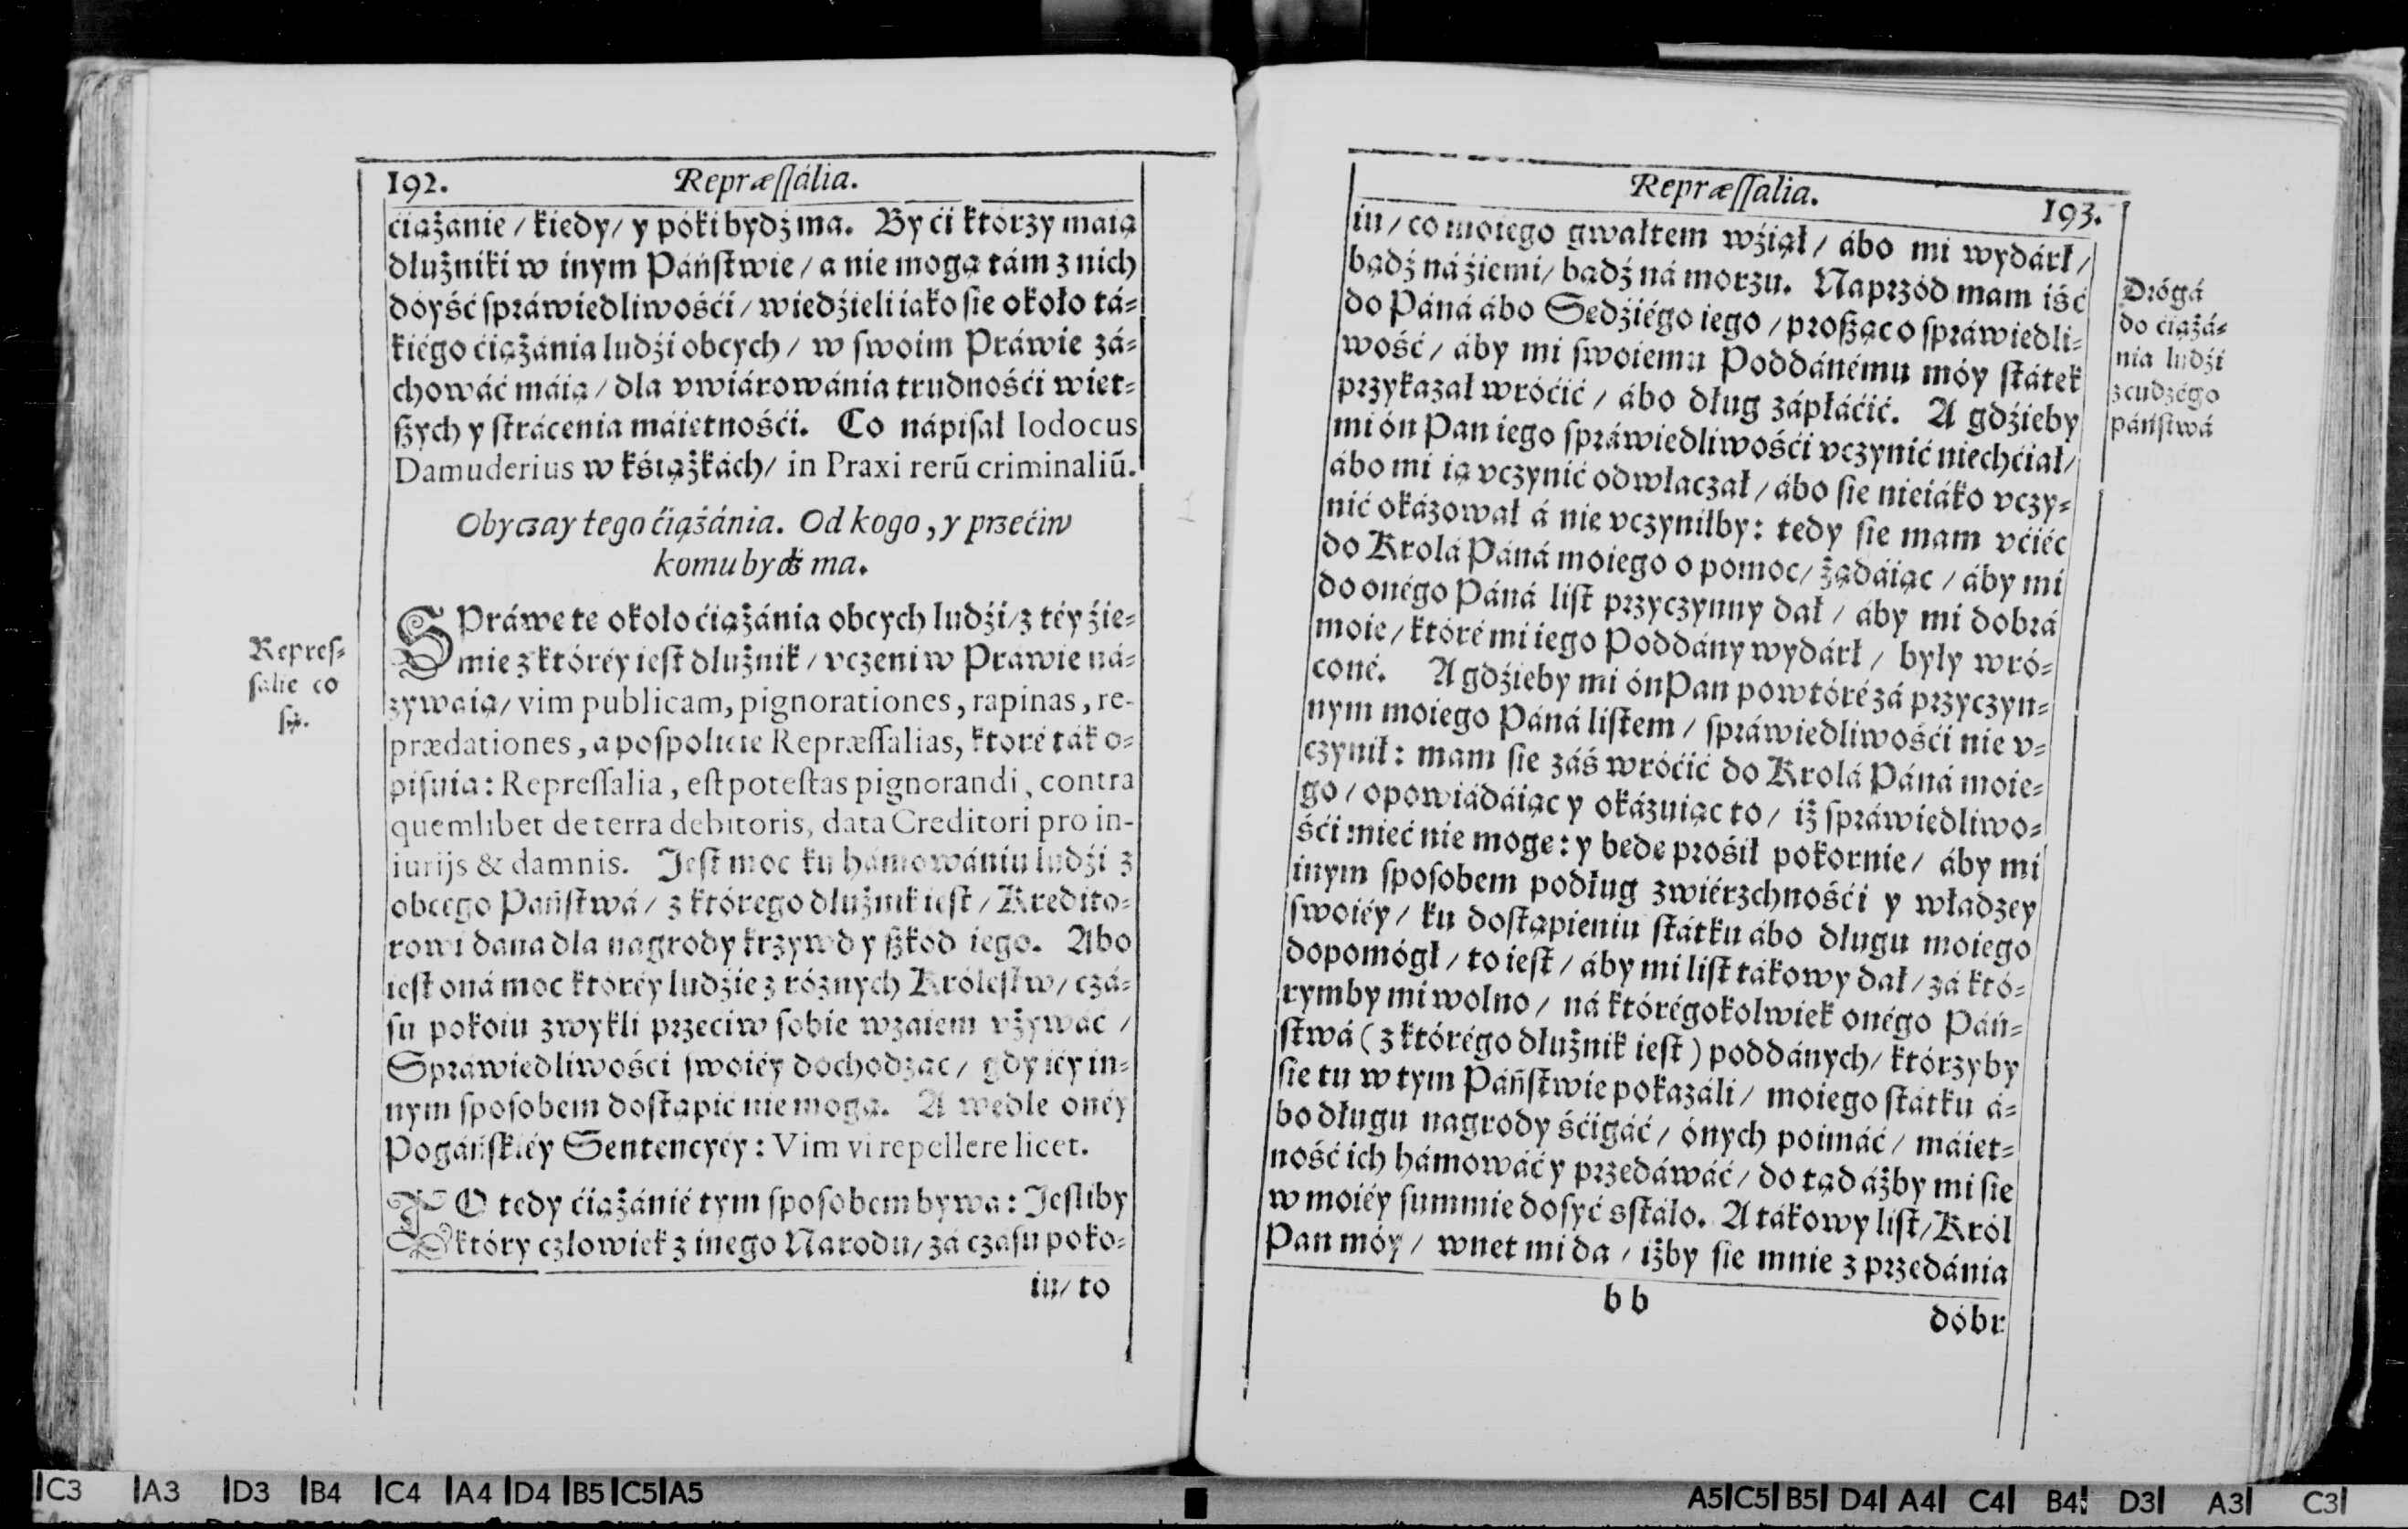 192. Repræſſália.
ćiążanie / kiedy / y póki bydź ma. By ći którzy maią
dłużniki w inym Páńſtwie / a nie mogą tám z nich
dóyść ſpráwiedliwośći / wiedźieli iako ſie około tá-
kiégo ćiążánia ludźi obcych / w ſwoim Práwie zá-
chowáć máią / dla vwiárowánia trudnośći wiet-
ßych y ſtrácenia máiętnośći. Co nápiſał Iodocus
Damuderius w kśiążkách / in Praxi rerū criminaliū.
Obyczay tego ćiążánia. Od kogo, y przećiw
komu bydź ma.
SPráwe te około ćiążánia obcych ludźi / z téy źie-
mie z któréy ieſt dłużnik / vczeni w Prawie ná-
zywaią / vim publicam, pignorationes, rapinas, re-
prædationes, a poſpolicie Repræſſalias, ktoré ták o-
piſuią: Repreſſalia, eſt poteſtas pignorandi, contra
quemlibet de terra debitoris, data Creditori pro in-
iurijs & damnis. Jeſt moc ku hámowániu ludźi z
obcego Pańſtwá / z którego dłużnik ieſt / Kredito-
rowi dana dla nagrody krzywd y ßkod iego. Abo
ieſt oná moc któréy ludźie z róznych Króleſtw / czá-
ſu pokoiu zwykli przećiw ſobie wzaiem vżywáć /
Spráwiedliwośći ſwoiéy dochodząc / gdy iéy in-
nym ſpoſobem doſtąpić nie mogą. A wedle onéy
Pogáńſkiéy Sentencyéy: Vim vi repellere licet.
TO tedy ćiążánié tym ſpoſobem bywa: Jeſliby
który człowiek z inego Narodu / zá czaſu poko-
iu / to
Repreſ-
ſalie co
ſą.
Repræſſalia. 193.
iu / co moiego gwałtem wźiął / ábo mi wydárł /
bądź ná źiemi / bądź ná morzu. Naprzód mam iść
do Páná ábo Sedźiégo iego / proßąc o ſpráwiedli-
wość / áby mi ſwoiemu Poddánému móy ſtátek
przykazał wróćić / ábo dług zápłáćić. A gdźieby
mi ón Pan iego ſpráwiedliwośći vczynić niechćiał /
ábo mi ią vczynić odwłaczał / ábo ſie nieiáko vczy-
nić okázował á nie vczyniłby: tedy ſie mam vćiéc
do Krolá Páná moiego o pomoc / żądáiąc / áby mi
do onégo Páná liſt przyczynny dał / áby mi dobrá
moie / któré mi iego Poddány wydárł / były wró-
coné. A gdźieby mi ón Pan powtóré zá przyczyn-
nym moiego Páná liſtem / ſpráwiedliwośći nie v-
czynił: mam ſie záś wróćić do Krolá Páná moie-
go / opowiádáiąc y okázuiąc to / iż ſpráwiedliwo-
śći mieć nie moge: y bede prośił pokornie / áby mi
inym ſpoſobem podług zwiérzchnośći y władzey
ſwoiéy / ku doſtąpieniu ſtátku ábo długu moiego
dopomógł / to ieſt / áby mi liſt tákowy dał / zá któ-
rymby mi wolno / ná którégokolwiek onégo Páń-
ſtwá ( z którégo dłużnik ieſt ) poddánych / którzyby
ſie tu w tym Páñſtwie pokazáli / moiego ſtátku á-
bo długu nagrody śćigáć / ónych poimáć / máiet-
ność ich hámowáć y przedáwáć / do tąd áżby mi ſie
w moiéy ſummie doſyć sſtáło. A tákowy liſt / Król
Pan móy / wnet mi da / iżby ſie mnie z przedánia
b b
dóbr
Drógá
do ćiążá-
nia ludźi
z cudzégo
páńſtwá
C3 A3 D3 B4 C4 A4 D4 B5 C5 A5
A5 C5 B5 D4 A4 C4 B4 D3 A3 C3